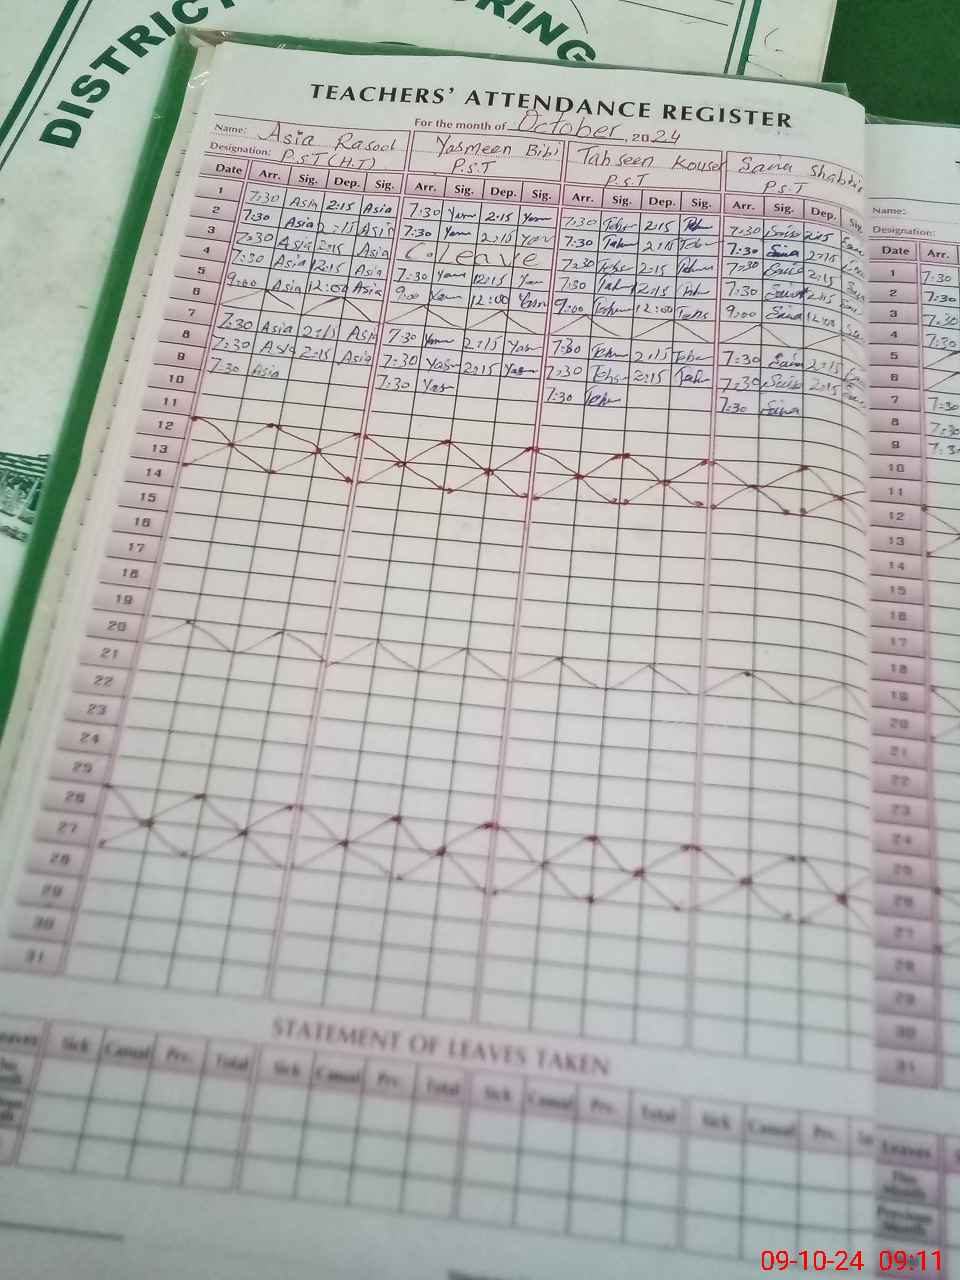 DISTRICT
ORING
TEACHERS' ATTENDANCE REGISTER
For the month of October, 2024
Name: Asia Rasool Yasmeen Bibi Tahseen Kouser Sana Shabbir
Designation: P.S.T (H.T) P.S.T P.S.T P.S.T
Date Arr. Sig. Dep. Sig. Arr. Sig. Dep. Sig. Arr. Sig. Dep. Sig. Arr. Sig. Dep. Sig.
1 7:30 Asia 2:15 Asia 7:30 Yasm 2:15 Yasm 7:30 Tehs 2:15 Teh 7:30 Sana 2:15
2 7:30 Asia 2:15 Asia 7:30 Yasm 2:15 Yasm 7:30 Tah 2:15 Teh 7:30 Sana 2:15
3 7:30 Asia 2:15 Asia C. Leave 7:30 Tehs 2:15 7:30 Sana 2:15
4 7:30 Asia 12:15 Asia 7:30 Yasm 12:15 Yasm 7:30 Tah 12:15 Tah 7:30 Sana
5 9:00 Asia 12:00 Asia 9:00 Yasm 12:00 Yasm 9:00 Tehs 12:00 Tehs 9:00 Sana 12:00
6
7 7:30 Asia 2:15 Asia 7:30 Yasm 2:15 Yasm 7:30 Tehs 2:15 Tehs 7:30 Sana 2:15
8 7:30 Asia 2:15 Asia 7:30 Yasm 2:15 Yasm 7:30 Tehs 2:15 Tah 7:30 Sana 2:15
9 7:30 Asia 7:30 Yas 7:30 Teh 7:30 Sana
10
11
12
13
14
15
16
17
18
19
20
21
22
23
24
25
26
27
28
29
30
31
STATEMENT OF LEAVES TAKEN
Leaves Sick Casual Prv. Total Sick Casual Prv. Total Sick Casual Prv. Total Sick Casual Prv.
Name:
Designation:
Date Arr.
1 7:30
2 7:30
3 7:30
4 7:30
5
6
7 7:30
8 7:30
9 7:3
10
11
12
13
14
15
16
17
18
19
20
21
22
23
24
25
26
27
28
29
30
31
Leaves
This Month
Previous Month
09-10-24 09:11